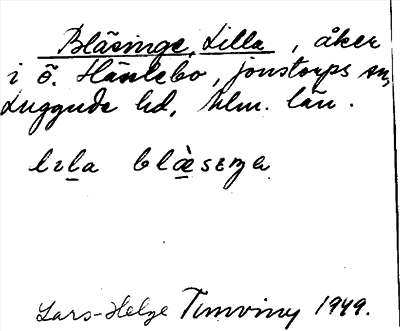 Blåsinge, Lilla, åker
i Ö. Hänlebo, Jonstorps sn,
Luggude hd, Mlm. län.
lɩla blæ̀sɩŋa
Lars-Helge Turnving 1949.